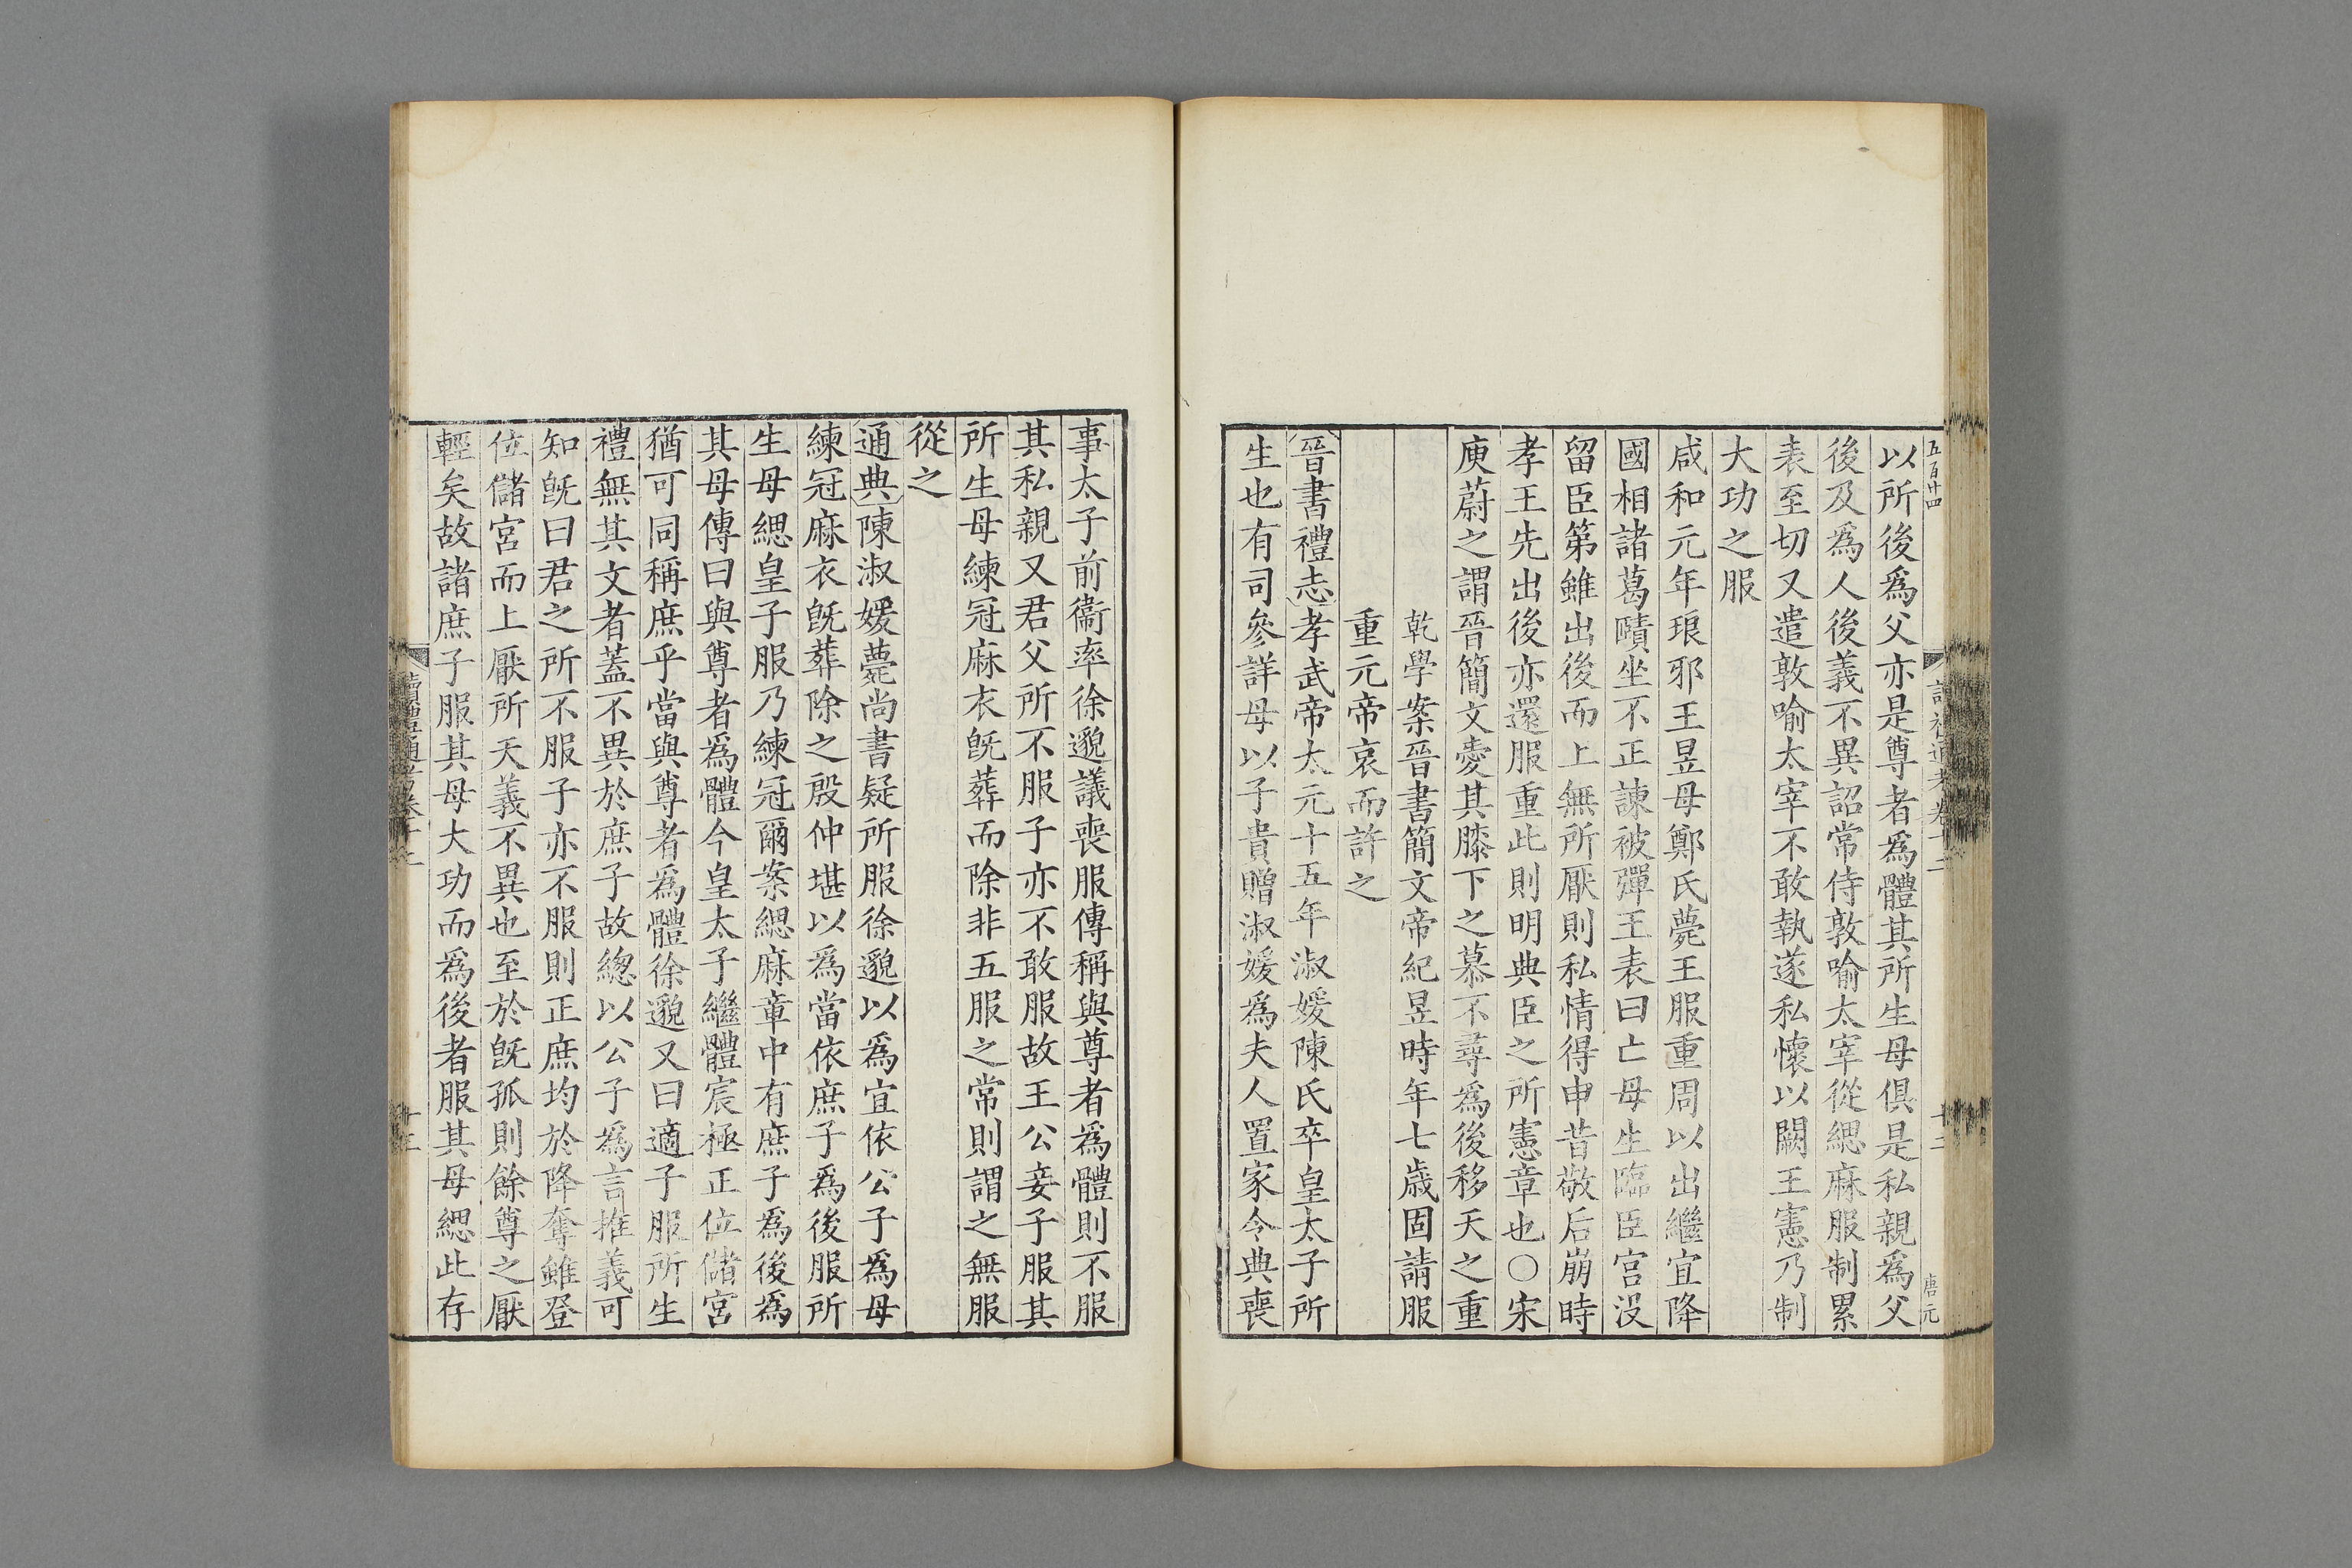 五百廿四
讀禮通考卷十二
廿二
唐元
以所後爲父亦是尊者爲體其所生母俱是私親爲父
後及爲人後義不異詔常侍敦喻太宰從緦麻服制累
表至切又遣敦喻太宰不敢執遂私懷以闕王憲乃制
大功之服
咸和元年琅邪王昱母鄭氏薨王服重周以出繼宜降
國相諸葛頤坐不正諫被彈王表曰亡母生臨臣宫没
留臣第雖出後而上無所厭則私情得申昔敬后崩時
孝王先出後亦還服重此則明典臣之所憲章也○宋
庾蔚之謂晉簡文愛其膝下之慕不尋爲後移天之重
乾學案晉書簡文帝紀昱時年七歳固請服
重元帝哀而許之
晉書禮志孝武帝太元十五年淑媛陳氏卒皇太子所
生也有司參詳母以子貴贈淑媛爲夫人置家令典喪
事太子前衞率徐邈議喪服傳稱與尊者爲體則不服
其私親又君父所不服子亦不敢服故王公妾子服其
所生母練冠麻衣旣葬而除非五服之常則謂之無服
從之
通典陳淑媛薨尚書疑所服徐邈以爲宜依公子爲母
練冠麻衣旣葬除之殷仲堪以爲當依庶子爲後服所
生母緦皇子服乃練冠爾案緦麻章中有庶子爲後爲
其母傳曰與尊者爲體今皇太子繼體宸極正位儲宮
猶可同稱庶乎當與尊者爲體徐邈又曰適子服所生
禮無其文者蓋不異於庶子故緫以公子爲言推義可
知旣曰君之所不服子亦不服則正庶均於降奪雖登
位儲宮而上厭所天義不異也至於旣孤則餘尊之厭
輕矣故諸庶子服其母大功而爲後者服其母緦此存
讀禮通考卷十二
廿三